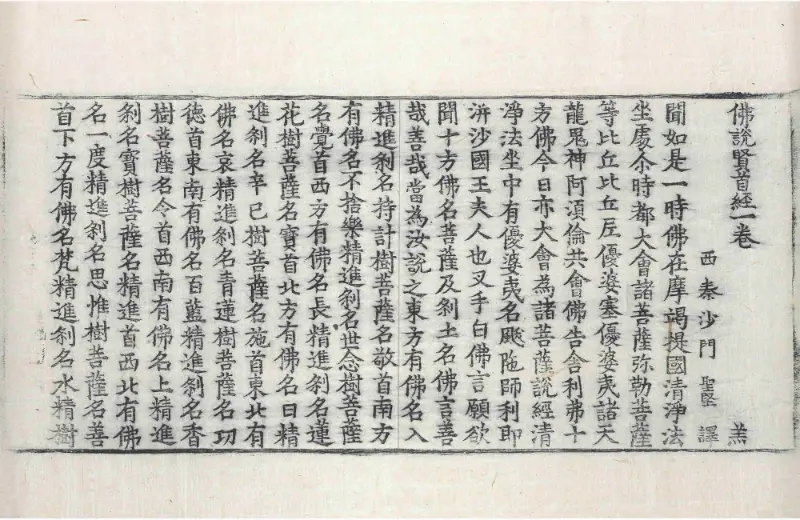 佛說賢首經一卷 羔
西秦沙門 聖堅 譯
聞如是一時佛在摩竭提國清淨法
坐處尒時都大會諸菩薩弥勒菩薩
等比丘比丘尼優婆塞優婆夷諸天
龍鬼神阿湏倫共會佛告舍利弗十
方佛今日亦大會為諸菩薩說經清
淨法坐中有優婆夷名颰陁師利即
洴沙國王夫人也叉手白佛言願欲
聞十方佛名菩薩及刹土名佛言善
哉善哉當為汝說之東方有佛名入
精進刹名持計樹菩薩名敬首南方
有佛名不捨樂精進刹名世念樹菩薩
名覺首西方有佛名長精進刹名蓮
花樹菩薩名寶首北方有佛名日精
進刹名辛巳樹菩薩名施首東北有
佛名哀精進刹名青蓮樹菩薩名功
德首東南有佛名百藍精進刹名香
樹菩薩名令首西南有佛名上精進
刹名寶樹菩薩名精進首西北有佛
名一度精進刹名思惟樹菩薩名善
首下方有佛名梵精進刹名水精樹